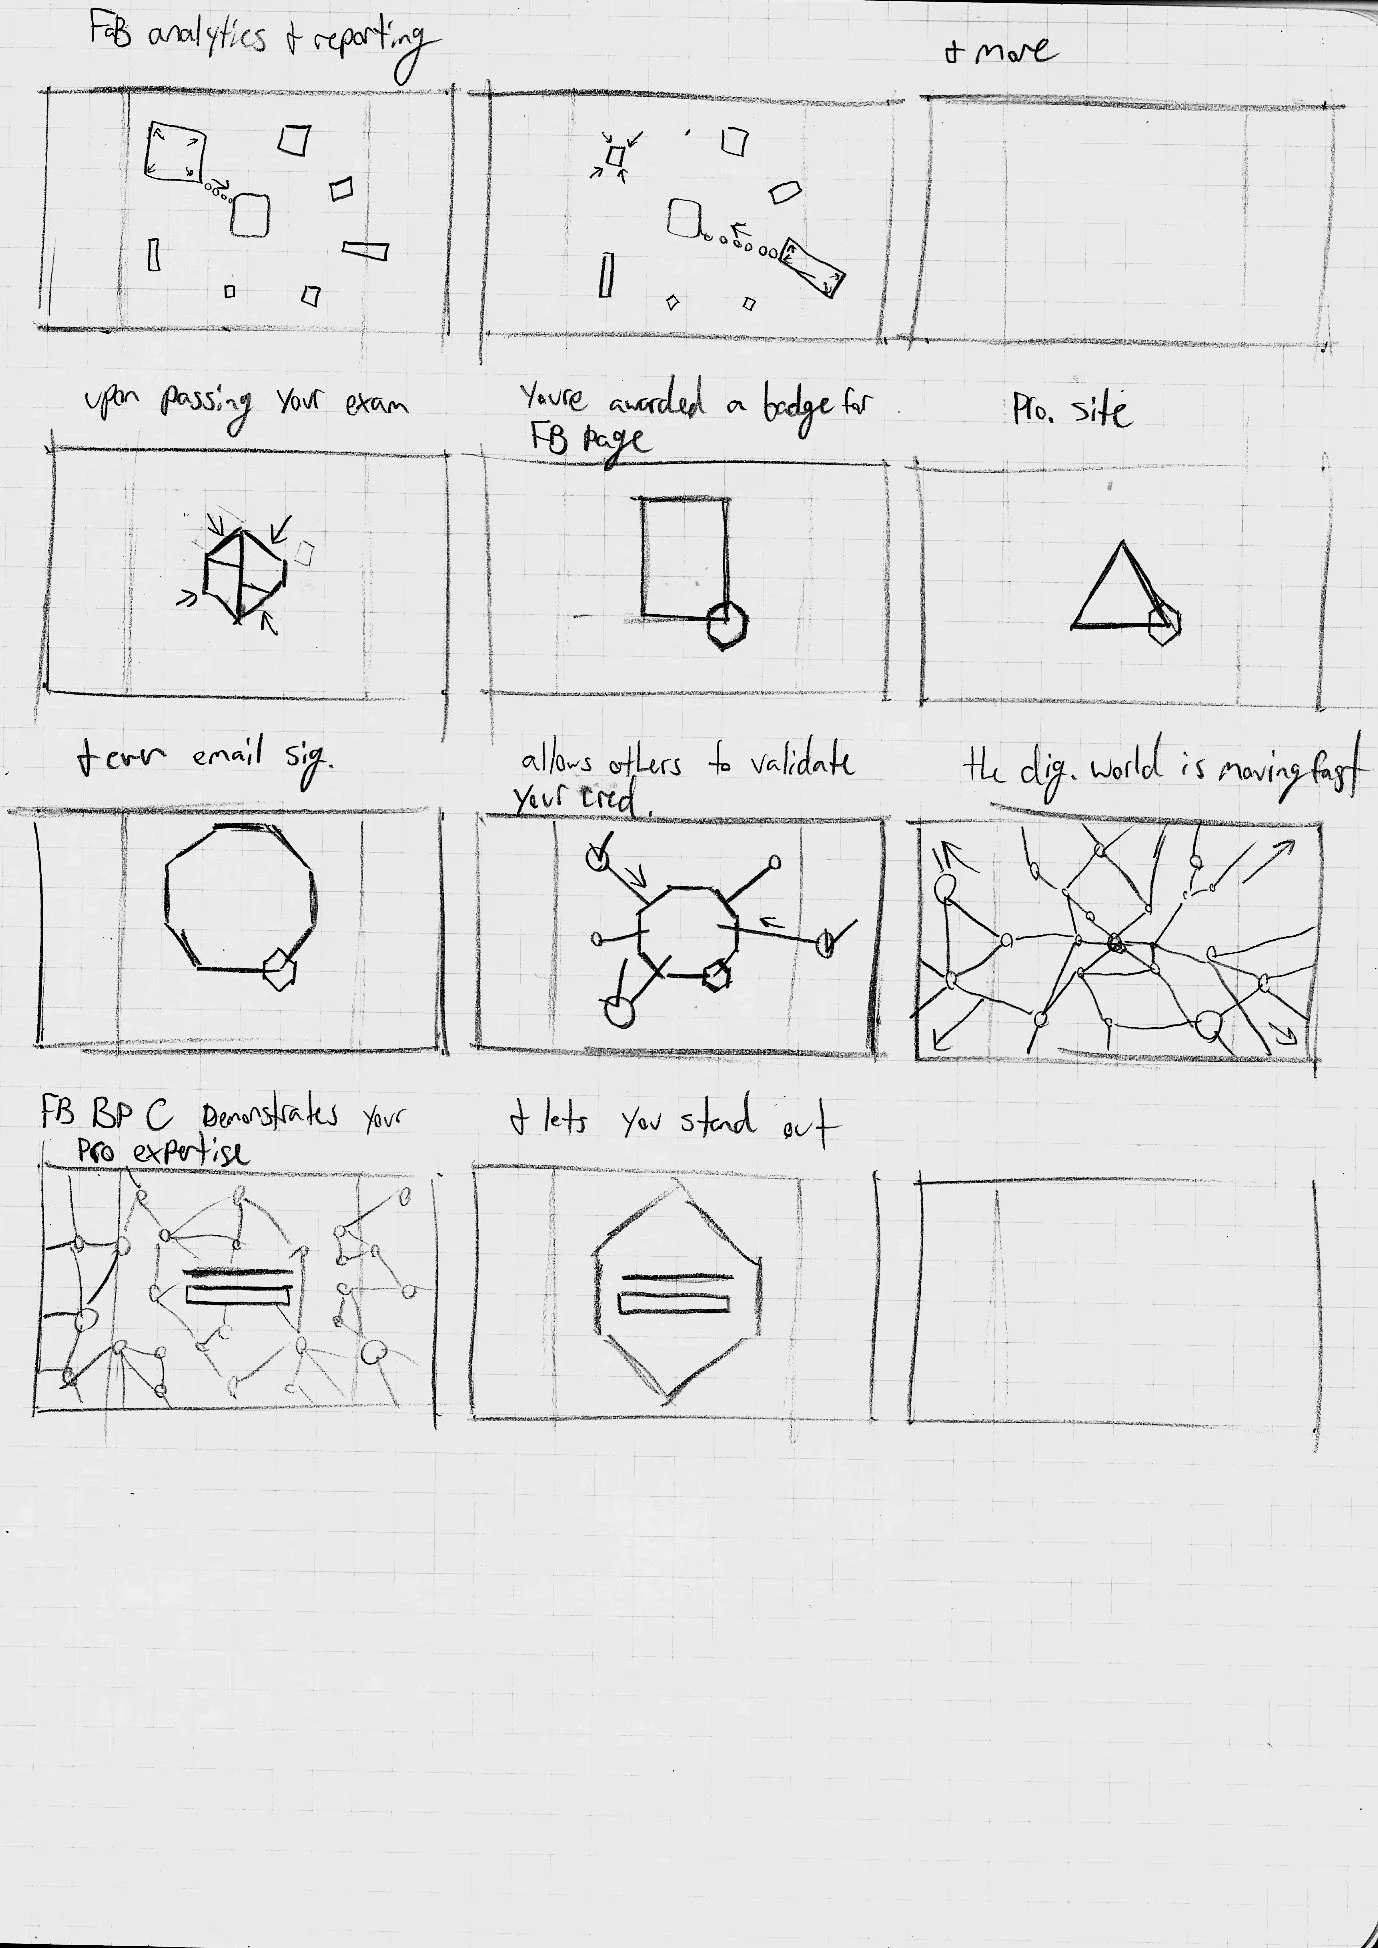 FaB analytics + reporting
+ more
upon passing your exam
Youre awarded a badge for
FB page
Pro. site
+ even email sig.
allows others to validate
your cred.
the dig. world is moving fast
FB BP C Demonstrates your
pro expertise
+ lets you stand out